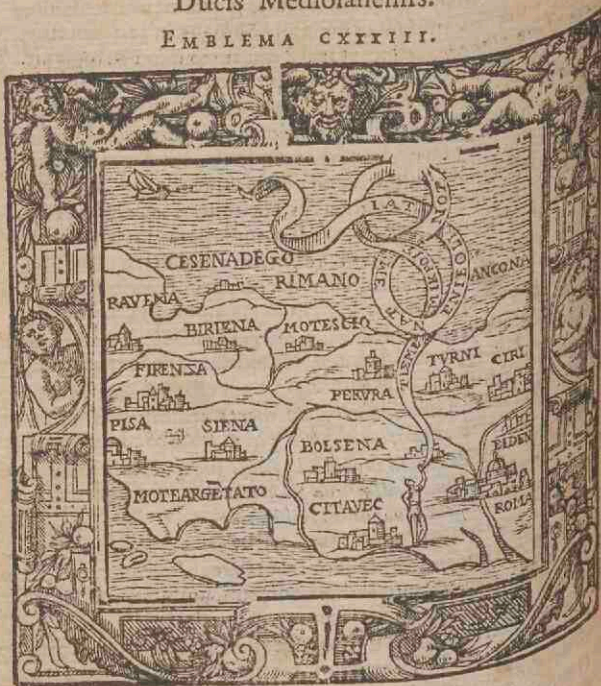 Ducis Mediolanensis.
EMBLEMA CXXXIII.
CESENADEGO
RIMANO
ANCONA
RAVENA
BIRIENA
MOTESCIO
FIRENSA
TVRNI
CIRI
PERVRA
PISA
SIENA
BOLSENA
MOTEARGẼTATO
CITAVEC
ROMA